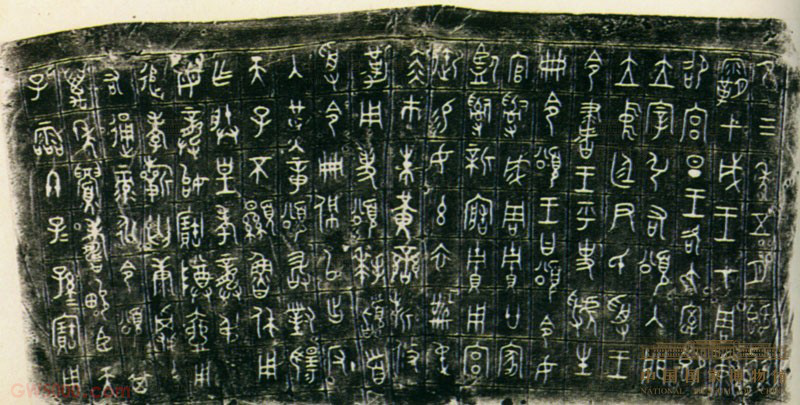 隹三年五月既死
霸甲戌王才周康
邵宮旦王各大室即
立宰弘右頌入門
立中廷尹氏受王
令書王乎史虢生
冊令頌王曰頌令女
官𤔲成周貯廿家
監𤔲新造貯用宮
御易女玄衣黹屯
赤巿朱黃䜌旂攸
勒用事頌拜稽首
受令冊佩以出反
入堇章頌敢對揚
天子不顯魯休用
乍朕皇考龏弔皇
母龏始寶尊壺用
追孝祈匄康𩁹屯
右通彔永令頌其
萬年眉壽畯臣天
子霝冬子子孫孫寶用
中国国家博物馆
NATIONAL MUSEUM OF CHINA